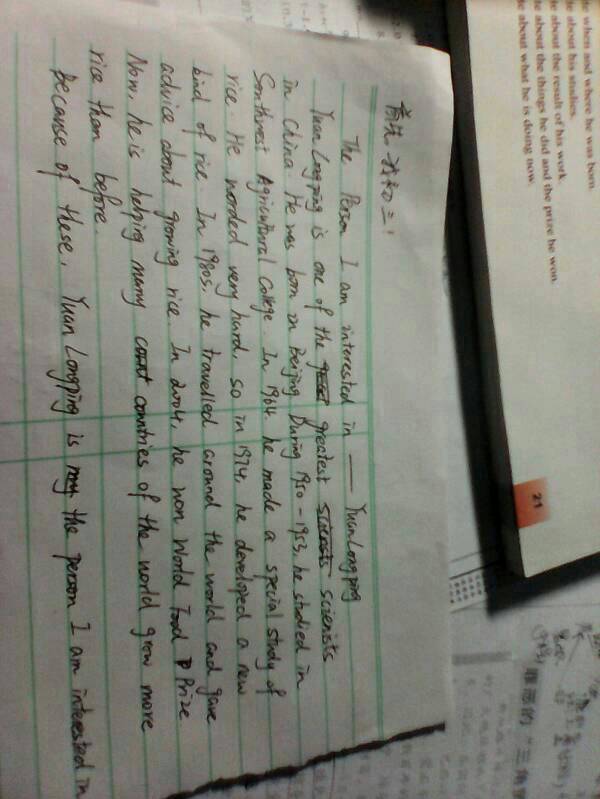 The Person I am interested in —— YuanLongping
Yuan Longping is one of the greatest scientists
in China. He was born in Beijing. During 1950-1953, he studied in
Southwest Agricultural College. In 1964, he made a special study of
rice. He worded very hard, so in 1974, he developed a new
kind of rice. In 1980s, he travelled around the world and gave
advice about growing rice. In 2004, he won World Food Prize
Now, he is helping many countries of the world grow more
rice than before.
Because of these, Yuan Longping is the person I am interested in
te when and where he was born.
te about his studies.
te about the result of his work.
te about the things he did and the prize he won.
te about what he is doing now.
21